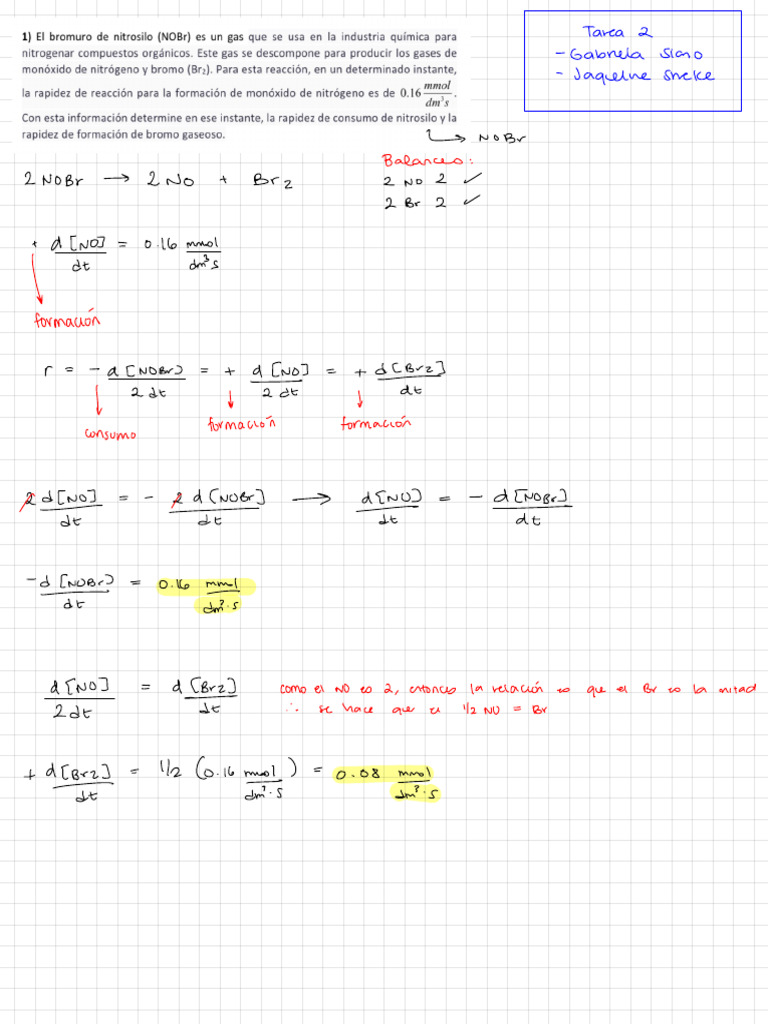 1) El bromuro de nitrosilo (NOBr) es un gas que se usa en la industria química para
nitrogenar compuestos orgánicos. Este gas se descompone para producir los gases de
monóxido de nitrógeno y bromo (Br₂). Para esta reacción, en un determinado instante,
la rapidez de reacción para la formación de monóxido de nitrógeno es de 0.16 mmol/dm³s.
Con esta información determine en ese instante, la rapidez de consumo de nitrosilo y la
rapidez de formación de bromo gaseoso.
Tarea 2
- Gabriela
- Jaqueline
→ NOBr
Balanceo:
2 NO 2 ✓
2 Br 2 ✓
2 NOBr → 2 NO + Br2
+ d[NO]/dt = 0.16 mmol/dm³s
formación
r = - d[NOBr]/2dt = + d[NO]/2dt = + d[Br2]/dt
consumo formación formación
2 d[NO]/dt = - 2 d[NOBr]/dt → d[NO]/dt = - d[NOBr]/dt
-d[NOBr]/dt = 0.16 mmol/dm³·s
d[NO]/2dt = d[Br2]/dt
como el NO es 2, entonces la relación es que el Br es la mitad
∴ se hace que es 1/2 NO = Br
+ d[Br2]/dt = 1/2 (0.16 mmol/dm³·s) = 0.08 mmol/dm³·s